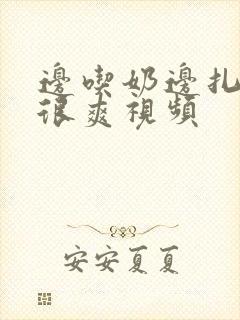 邊喫奶邊扎
很爽視頻
安安夏夏